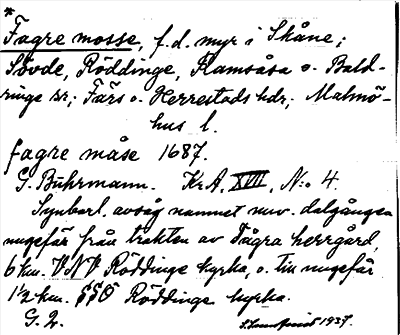 *
Fagre mosse, f.d. myr i Skåne;
Sövde, Röddinge, Ramsåsa o. Bald-
ringe snr; Färs o. Herrestads hdr; Malmö-
hus l.
fagre måse 1687.
G. Buhrmann. KrA, XVII, N:o 4.
Synbarl. avsåg namnet nuv. dalgången
ungefär från trakten av Fågra herrgård,
6 km. VNV Röddinge kyrka, o. till ungefär
1½ km. SSÖ Röddinge kyrka.
G. 2. 1937.